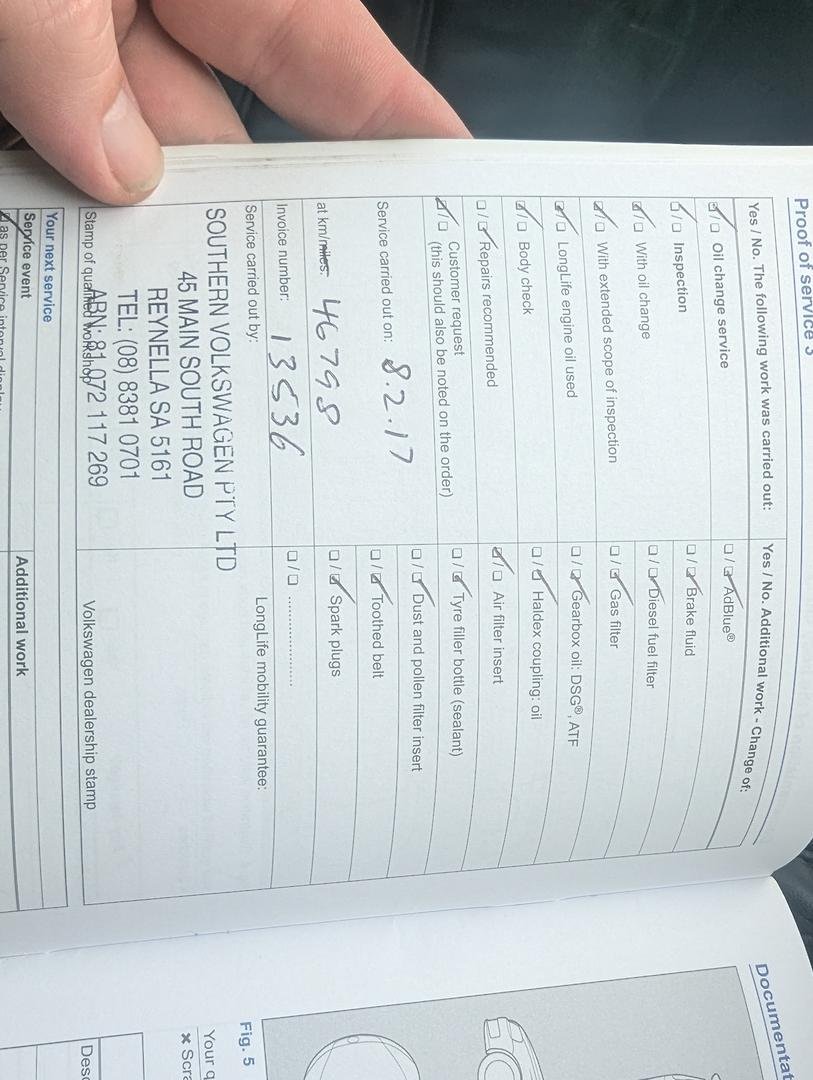 Proof of service 3
Yes / No. The following work was carried out:
Oil change service
Inspection
With oil change
With extended scope of inspection
LongLife engine oil used
Body check
Repairs recommended
Customer request
(this should also be noted on the order)
Service carried out on: 8.2.17
at km/miles: 46798
Invoice number: 13536
Service carried out by:
SOUTHERN VOLKSWAGEN PTY LTD
45 MAIN SOUTH ROAD
REYNELLA SA 5161
TEL: (08) 8381 0701
ABN: 81 072 117 269
Stamp of qualified workshop
Yes / No. Additional work - Change of:
AdBlue®
Brake fluid
Diesel fuel filter
Gas filter
Gearbox oil: DSG®, ATF
Haldex coupling: oil
Air filter insert
Tyre filler bottle (sealant)
Dust and pollen filter insert
Toothed belt
Spark plugs
....................
LongLife mobility guarantee:
Volkswagen dealership stamp
Your next service
Service event
Additional work
as per Service interval display
Documentat
Fig. 5
Your q
× Scra
Desc